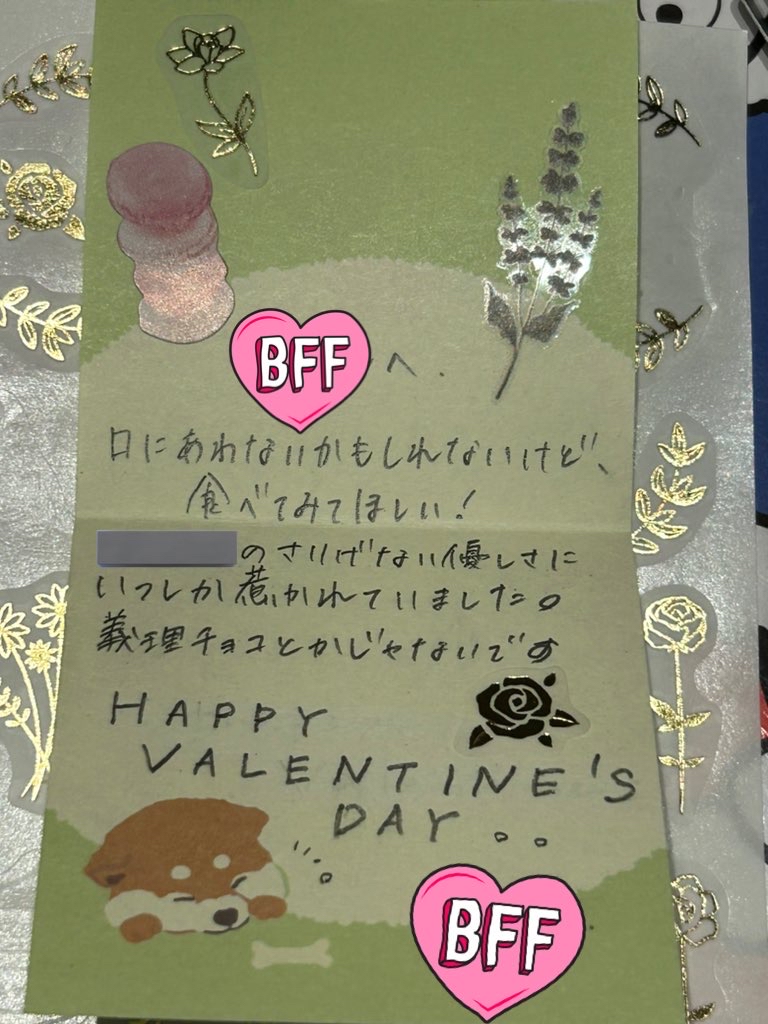 BFF へ.
口にあわないかもしれないけど、
食べてみてほしい!
のさりげない優しさに
いつしか惹かれていました。
義理チョコとかじゃないです
HAPPY
VALENTINE'S
DAY 。。
BFF